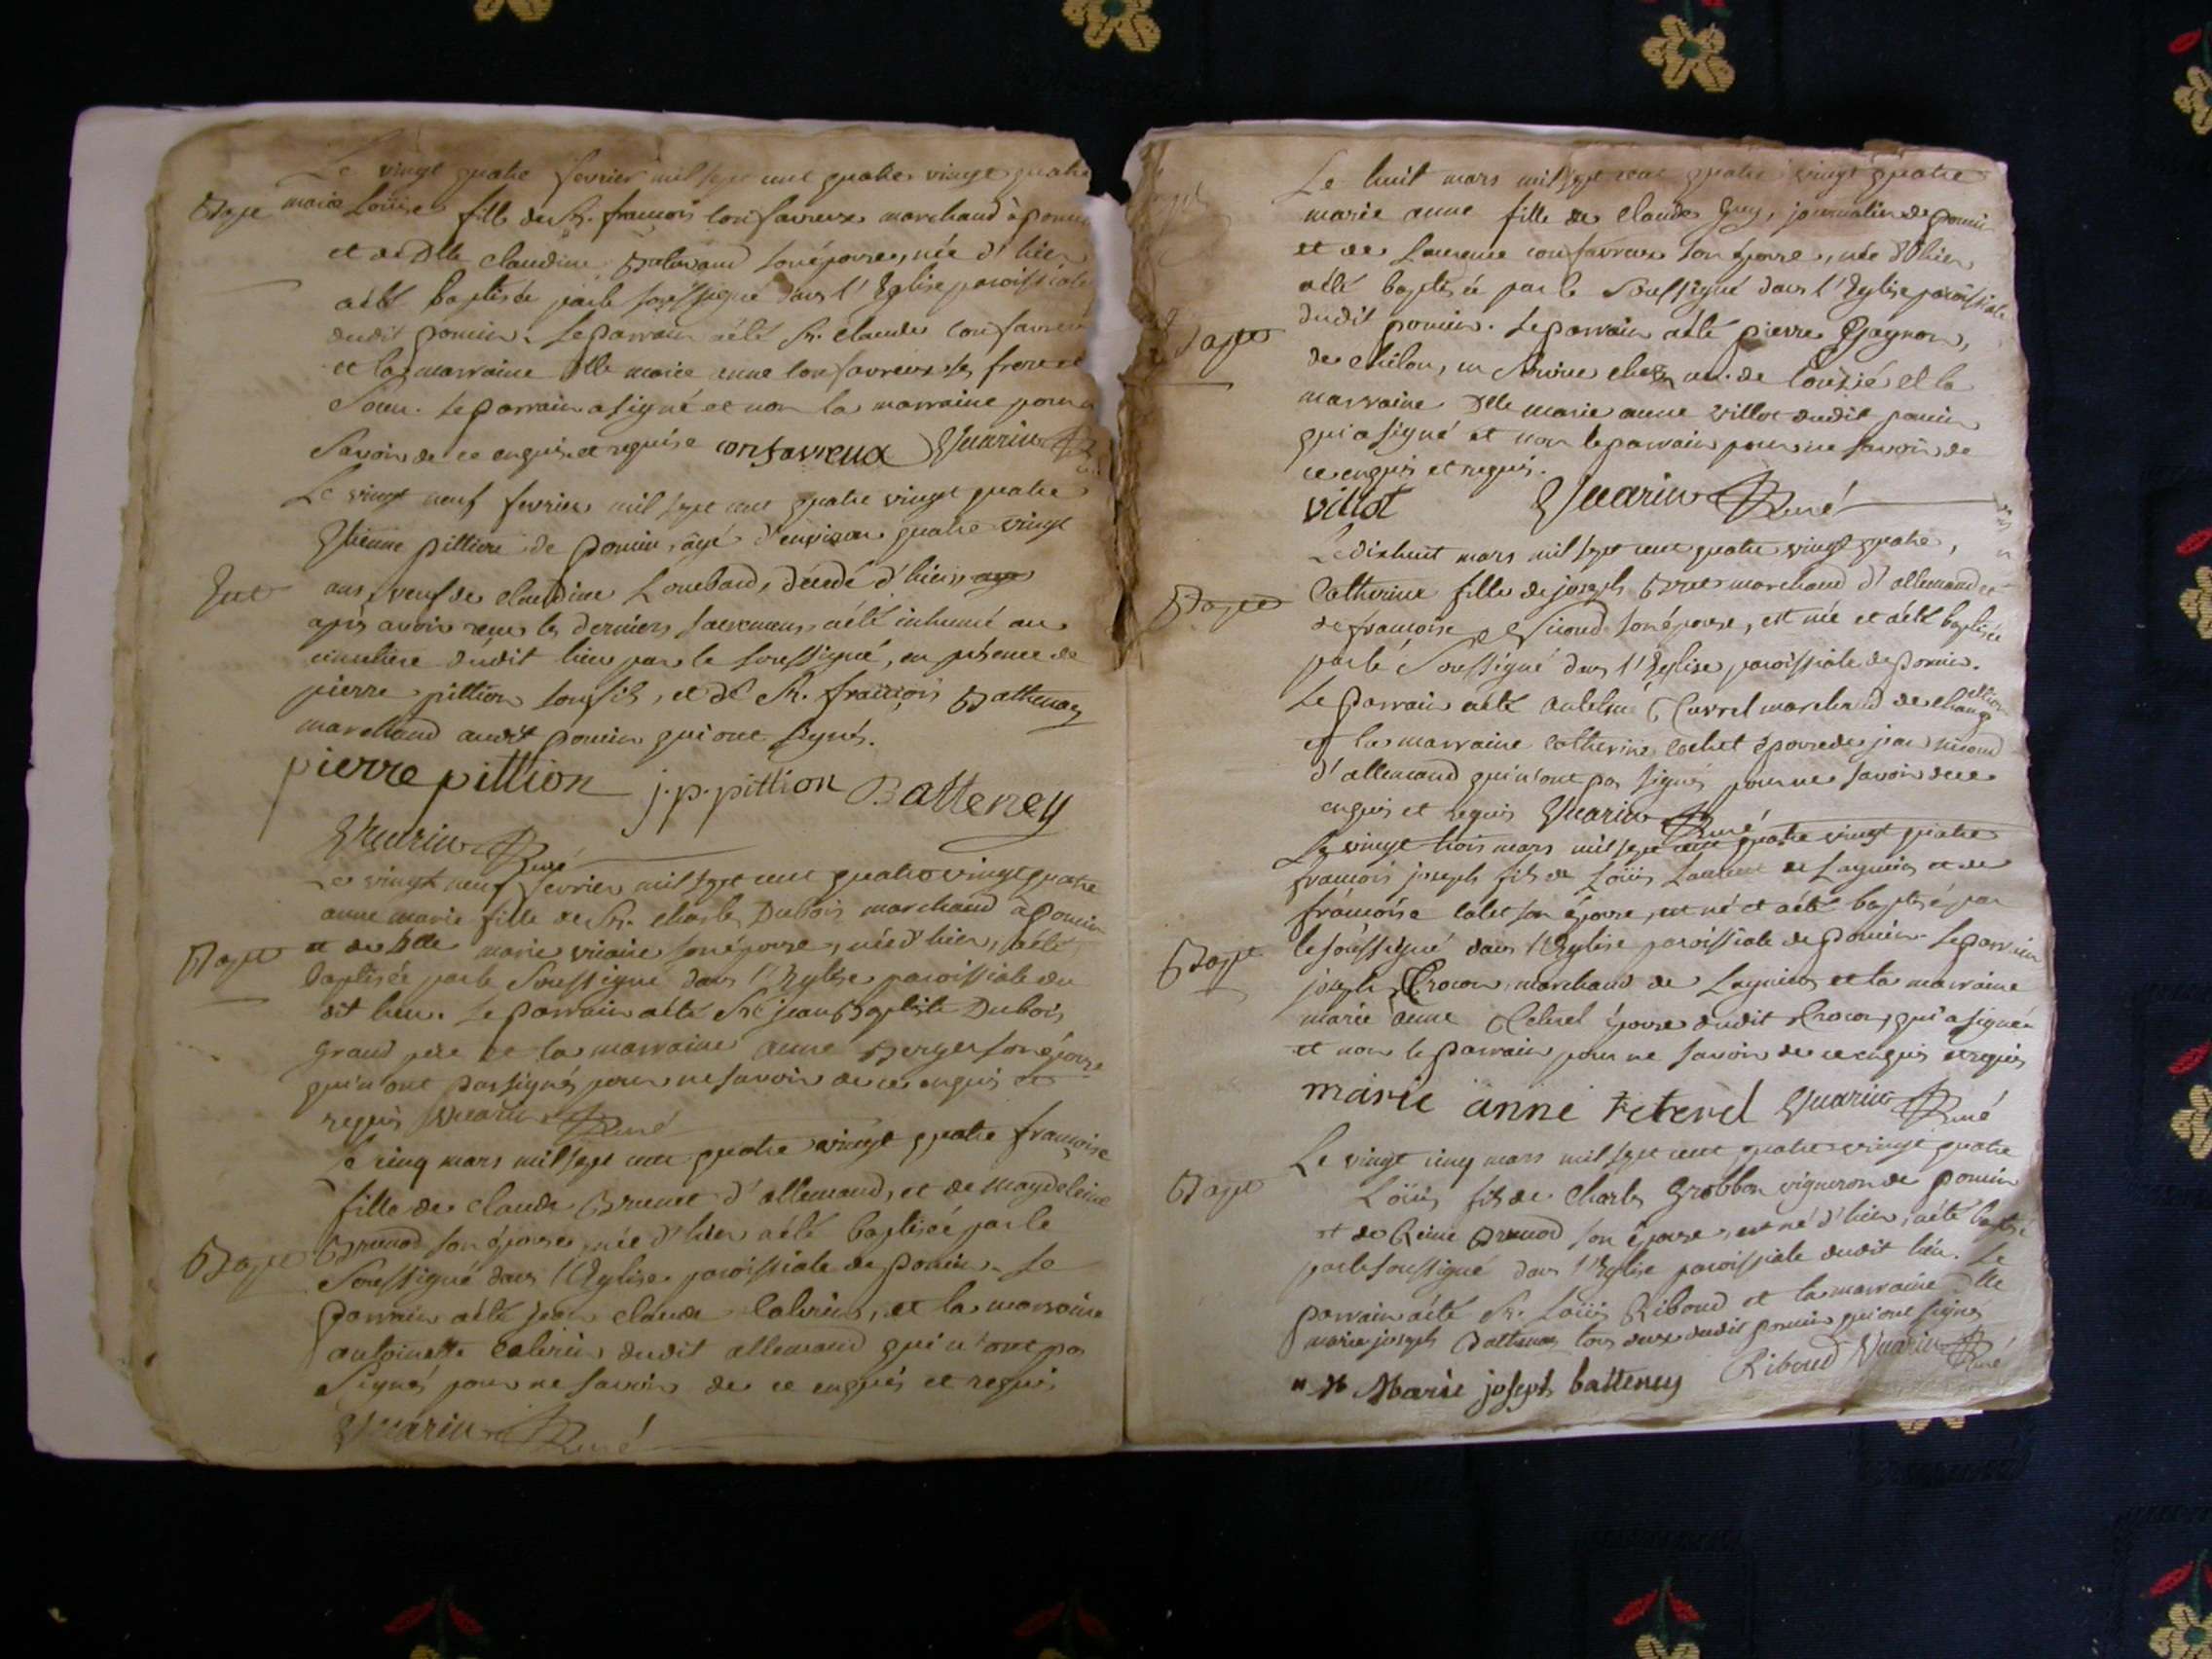 Le vingt quatre fevrier mil sept cent quatre vingt quatre
Bapt marie Loüise fille du Sr. francois confavreux marchand à poncin
et de Dlle claudine son épouse, née d'hier
a été baptisée par le soussigné dans l'Eglise paroissiale
dudit poncin. Le parrain a été Sr. claude confavreux
et la marraine Dlle marie anne confavreux ses frere et
soeur. Le parrain a signé et non la marraine pour
savoir de ce enquise et requise confavreux Guarin
Le vingt neuf fevrier mil sept cent quatre vingt quatre
Etienne pittion de poncin, âgé d'environ quatre vingt
ans, veuf de claudine Loubard, décédé d'hier
après avoir reçu les derniers sacremens a été inhumé au
cimetière dudit lieu par le soussigné, en présence de
pierre pittion son fils, et de Sr. françois Battenay
marchand audit poncin qui ont signés.
pierre pittion j.p. pittion Batteney
Guarin curé
Le vingt neuf fevrier mil sept cent quatre vingt quatre
anne marie fille de Sr. charles Dubois marchand à poncin
Bapt et de Dlle marie son épouse, née d'hier, a été
baptisée par le soussigné dans l'Eglise paroissiale du
dit lieu. Le parrain a été Sr. jean Baptiste Dubois
grand pere et la marraine anne Berger son épouse
qui n'ont pas signés pour ne savoir de ce enquis et
requis Guarin curé
Le cinq mars mil sept cent quatre vingt quatre françoise
fille de claude Brunet d'allemand, et de magdeleine
Bapt Brunod son épouse, née d'hier a été baptisée par le
soussigné dans l'Eglise paroissiale de poncin. Le
parrain a été jean claude Calerin, et la marraine
antoinette Calerin dudit allemand qui n'ont pas
signés pour ne savoir de ce enquis et requis
Guarin curé
Le huit mars mil sept cent quatre vingt quatre
marie anne fille de claude Guy, journalier de poncin
et de confavreux son épouse, née d'hier
a été baptisée par le soussigné dans l'Eglise paroissiale
Bapt dudit poncin. Le parrain a été pierre Gagnon,
de chilou, en service chez mr. de et la
marraine Dlle marie anne villot dudit poncin
qui a signé et non le parrain pour ne savoir de
ce enquis et requis.
villot Guarin curé
Le dixhuit mars mil sept cent quatre vingt quatre,
Bapt Catherine fille de joseph marchand d'allemand et
de francoise son épouse, est née et a été baptisée
par le soussigné dans l'Eglise paroissiale de poncin.
Le parrain a été antelme marchand de
et la marraine catherine cochet épouse de jean
d'allemand qui n'ont pas signés pour ne savoir de ce
enquis et requis Guarin curé
Le vingt trois mars mil sept cent quatre vingt quatre
francois joseph fils de Loüis Laurent de Lagnieu et de
francoise son épouse, est né et a été baptisé par
Bapt le soussigné dans l'Eglise paroissiale de poncin. Le parrain
joseph Crocon, marchand de Lagnieu et la marraine
marie anne épouse dudit Crocon, qui a signée
et non le parrain pour ne savoir de ce enquis et requis
marie anne Guarin curé
Le vingt cinq mars mil sept cent quatre vingt quatre
Bapt Loüis fils de Charles Grobbon vigneron de poncin
et de Reine Brunod son épouse, est né d'hier, a été baptisé
par le soussigné dans l'Eglise paroissiale dudit lieu. Le
parrain a été Sr. Loüis Riboud et la marraine Dlle
marie joseph Battenay tous deux dudit poncin qui ont signés
Marie joseph batteney Riboud Guarin curé